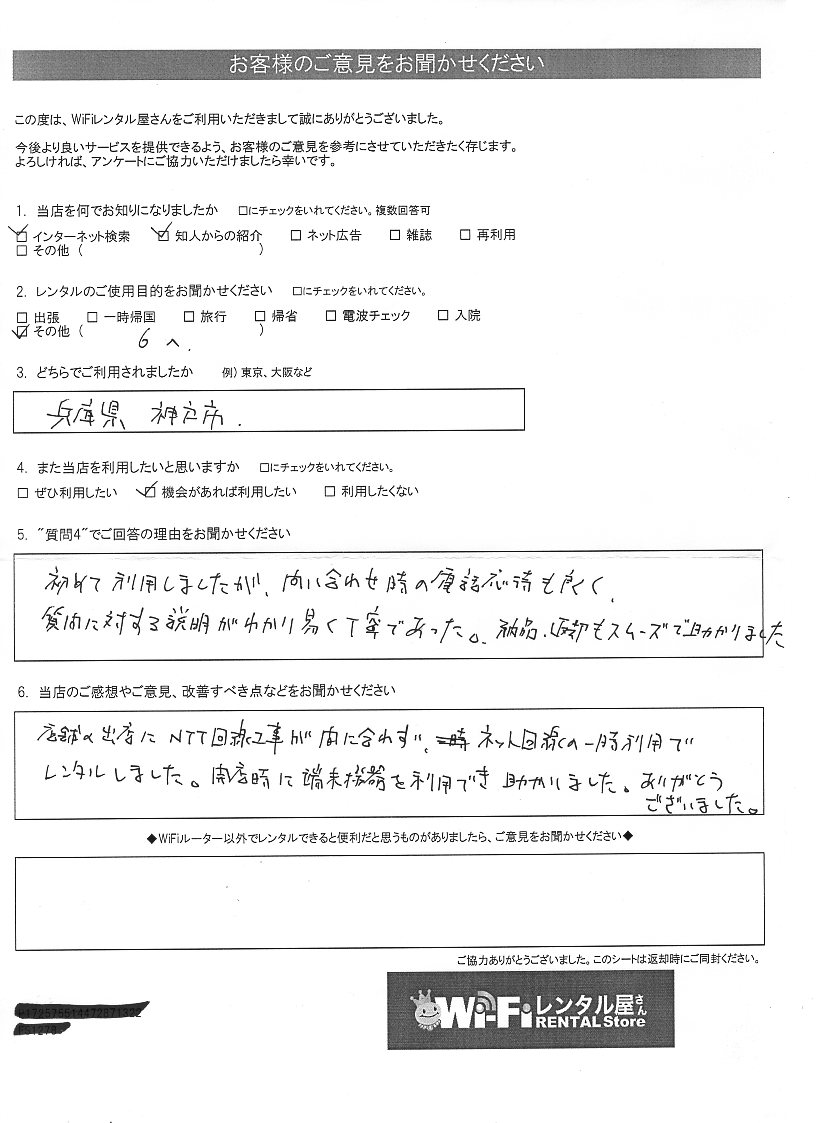 お客様のご意見をお聞かせください
この度は、WiFiレンタル屋さんをご利用いただきまして誠にありがとうございました。
今後より良いサービスを提供できるよう、お客様のご意見を参考にさせていただきたく存じます。
よろしければ、アンケートにご協力いただけましたら幸いです。
1. 当店を何でお知りになりましたか □にチェックをいれてください。複数回答可
☑ インターネット検索 ☑ 知人からの紹介 □ ネット広告 □ 雑誌 □ 再利用
□ その他 ( )
2. レンタルのご使用目的をお聞かせください □にチェックをいれてください。
□ 出張 □ 一時帰国 □ 旅行 □ 帰省 □ 電波チェック □ 入院
☑ その他 ( 6 へ. )
3. どちらでご利用されましたか 例) 東京、大阪など
兵庫県 神戸市.
4. また当店を利用したいと思いますか □にチェックをいれてください。
□ ぜひ利用したい ☑ 機会があれば利用したい □ 利用したくない
5. "質問4"でご回答の理由をお聞かせください
初めて利用しましたが、問い合わせ時の電話応待も良く、
質問に対する説明がわかり易く丁寧であった。納品、返却もスムーズで助かりました
6. 当店のご感想やご意見、改善すべき点などをお聞かせください
店舗の出店にNTT回線工事が間に合わず、ネット回線の一時利用で
レンタルしました。開店時に端末機器を利用でき助かりました。ありがとう
ございました。
◆WiFiルーター以外でレンタルできると便利だと思うものがありましたら、ご意見をお聞かせください◆
ご協力ありがとうございました。このシートは返却時にご同封ください。
Wi-Fiレンタル屋さん
RENTAL Store